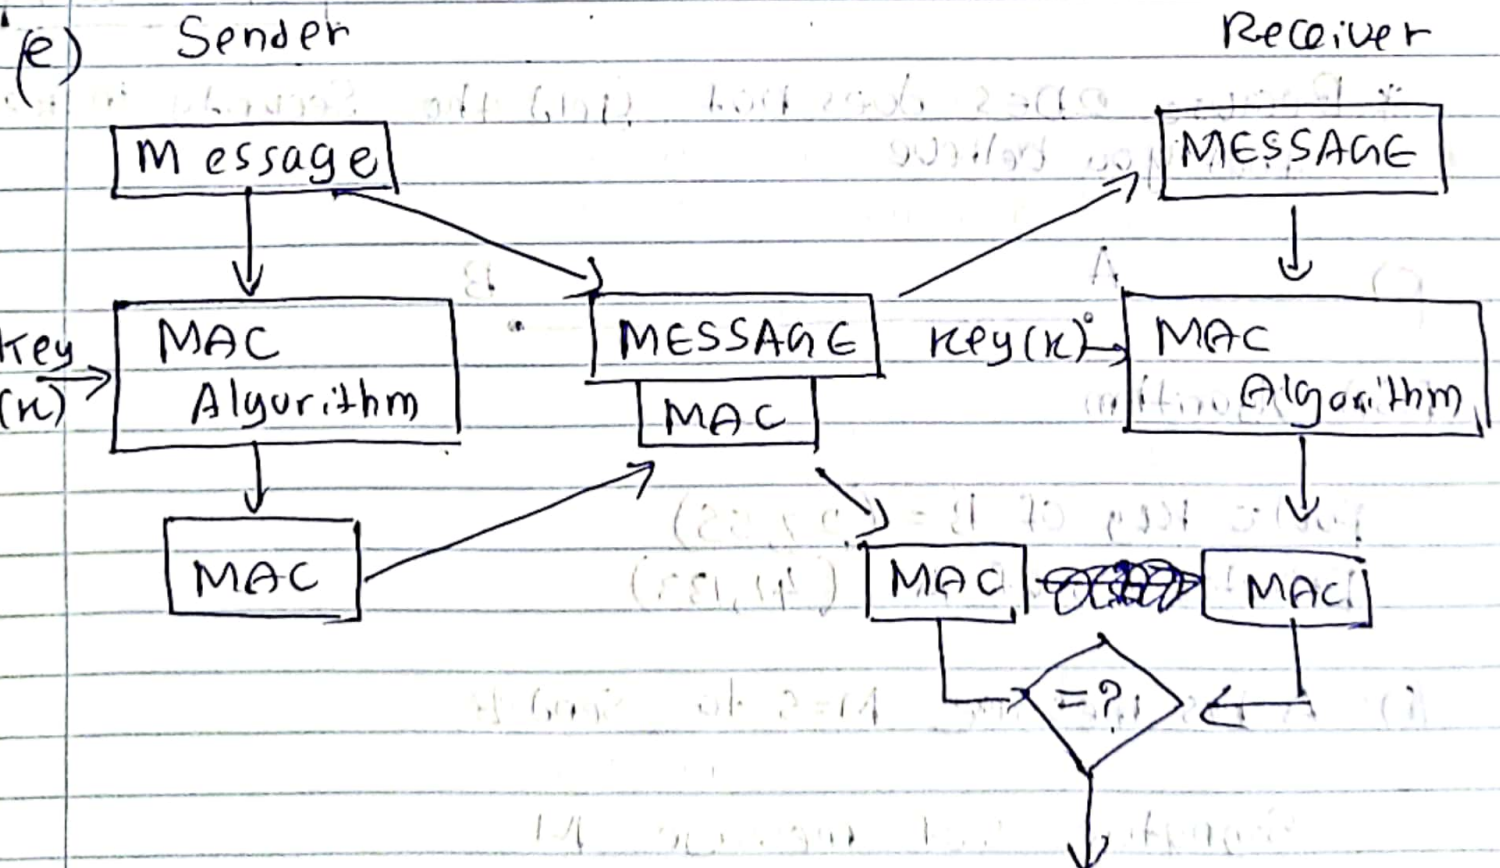 (e) Sender Receiver
Message MESSAGE
Key
(K)
MAC
Algorithm
MESSAGE
MAC
Key(K)
MAC
Algorithm
MAC
MAC
MAC
=?